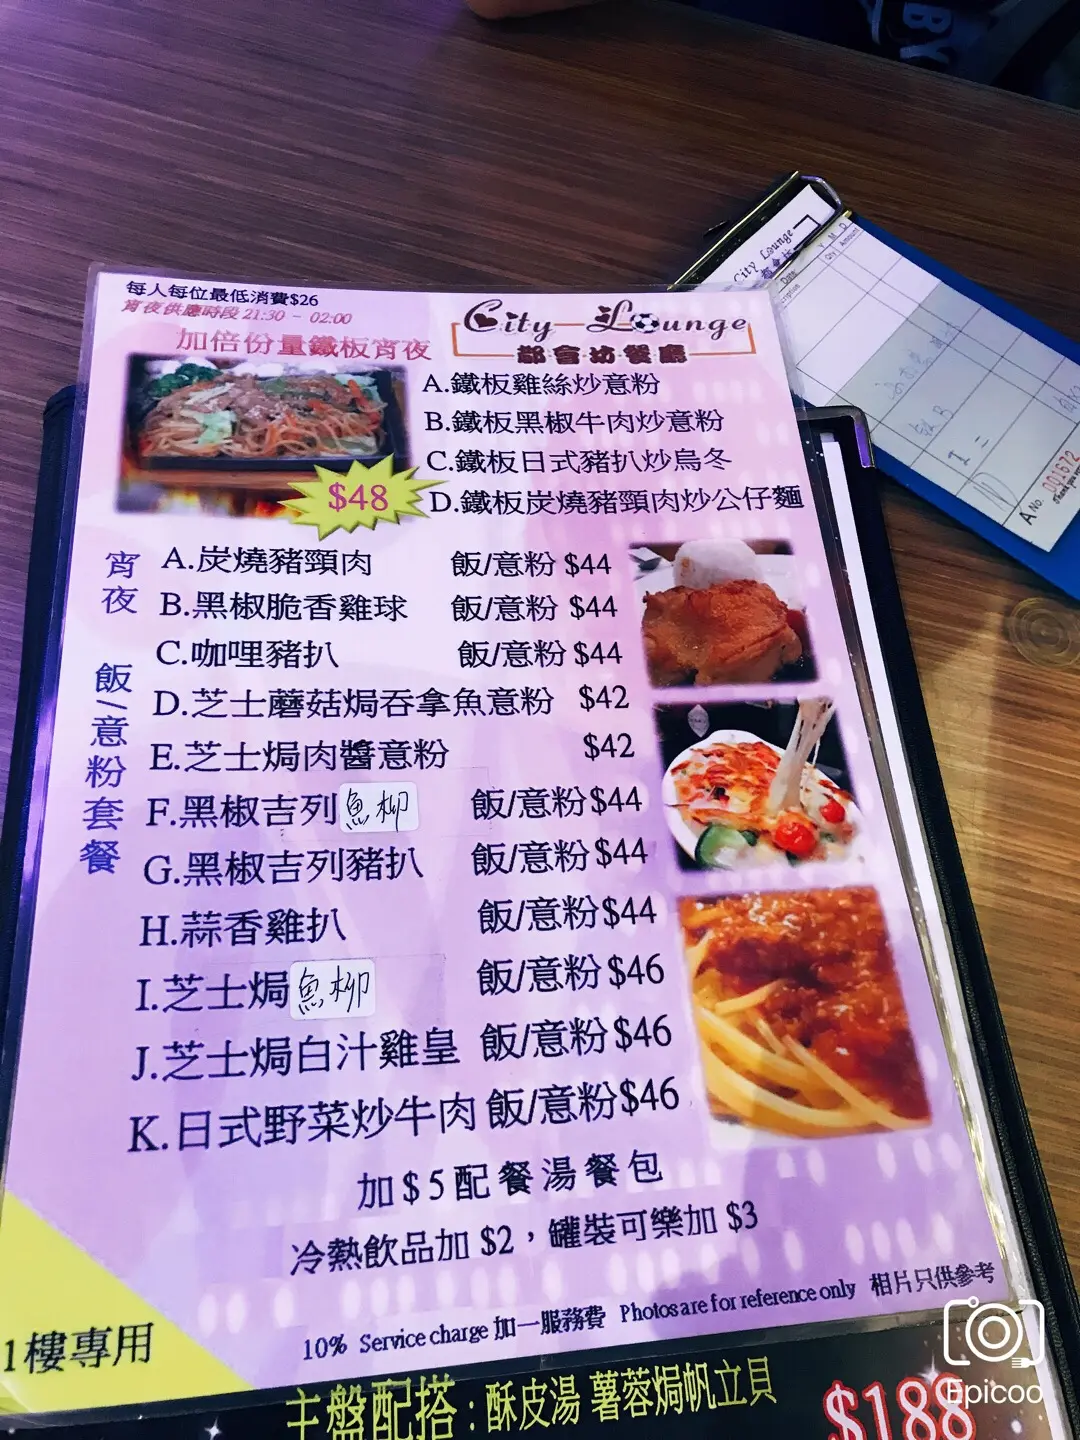 每人每位最低消費$26
宵夜供應時段 21:30 - 02:00
加倍份量鐵板宵夜
City Lounge
都會坊餐廳
$48
A.鐵板雞絲炒意粉
B.鐵板黑椒牛肉炒意粉
C.鐵板日式豬扒炒烏冬
D.鐵板炭燒豬頸肉炒公仔麵
宵夜 飯/意粉套餐
A.炭燒豬頸肉 飯/意粉 $44
B.黑椒脆香雞球 飯/意粉 $44
C.咖哩豬扒 飯/意粉 $44
D.芝士蘑菇焗吞拿魚意粉 $42
E.芝士焗肉醬意粉 $42
F.黑椒吉列魚柳 飯/意粉 $44
G.黑椒吉列豬扒 飯/意粉 $44
H.蒜香雞扒 飯/意粉 $44
I.芝士焗魚柳 飯/意粉 $46
J.芝士焗白汁雞皇 飯/意粉 $46
K.日式野菜炒牛肉 飯/意粉 $46
加 $ 5 配 餐 湯 餐 包
冷熱飲品加 $2，罐裝可樂加 $3
10% Service charge 加一服務費 Photos are for reference only 相片只供參考
1樓專用
主盤配搭：酥皮湯 薯蓉焗帆立貝
$188
City Lounge
Date
Y M D
Qty Amount
A No. 001672
Thank you
Epicoo